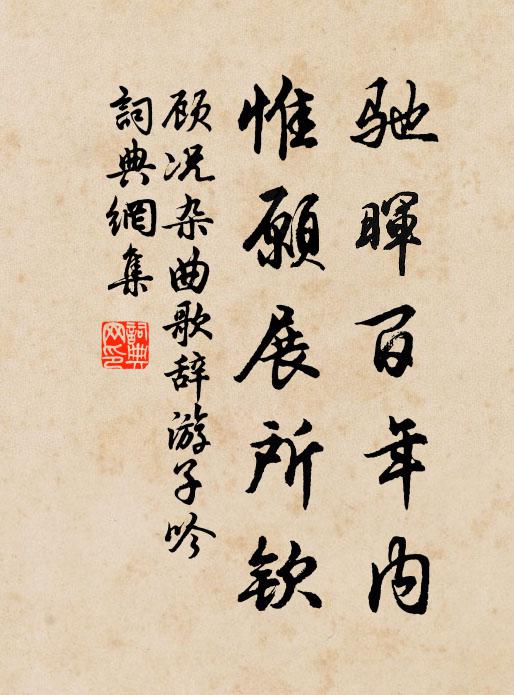 驰晖百年内
惟願展所钦
顾况杂曲歌辞游子吟
詞典網集
詞典网印